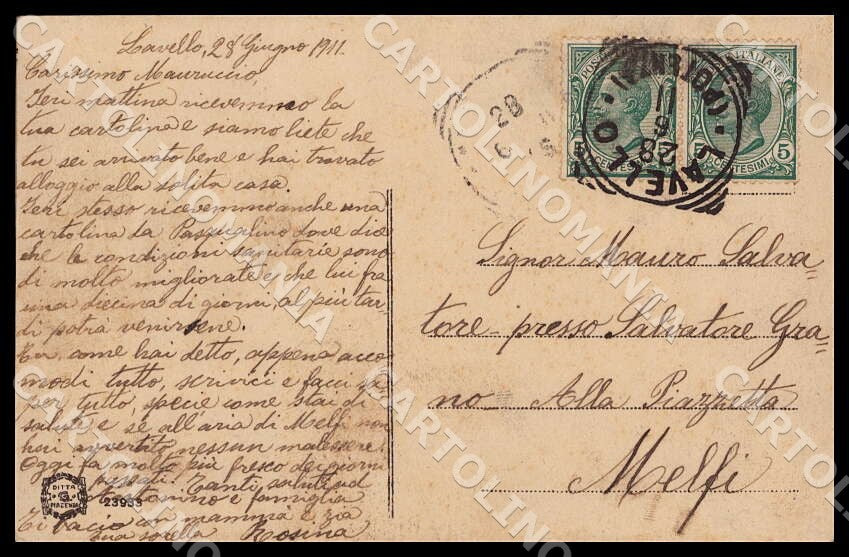 Lavello, 28 Giugno 1911.
Carissimo Mauruccio
Ieri mattina ricevemmo la
tua cartolina e siamo liete che
tu sei arrivato bene e hai trovato
alloggio alla solita casa.
Ieri stesso ricevemmo anche una
cartolina da Pasqualino dove dice
che le condizioni sanitarie sono
di molto migliorate e che lui fra
una diecina di giorni, al più tar-
di potrà venirsene.
Tu, come hai detto, appena acco-
modi tutto, scrivici e facci sa-
per tutto, specie come stai di
salute e se all'aria di Melfi non
hai avvertito nessun malessere.
Oggi fa molto più fresco dei giorni
passati. Tanti saluti ad
e famiglia
Ti bacio con mammà e zia
tua sorella Rosina
DITTA
G.
MACENIA
23933
POSTE ITALIANE
5 CENTESIMI 5
LAVELLO (POTENZA)
28 6 11
Signor Mauro Salva=
tore= presso Salvatore Gra=
no= Alla Piazzetta
Melfi
CARTOLINOMANIA